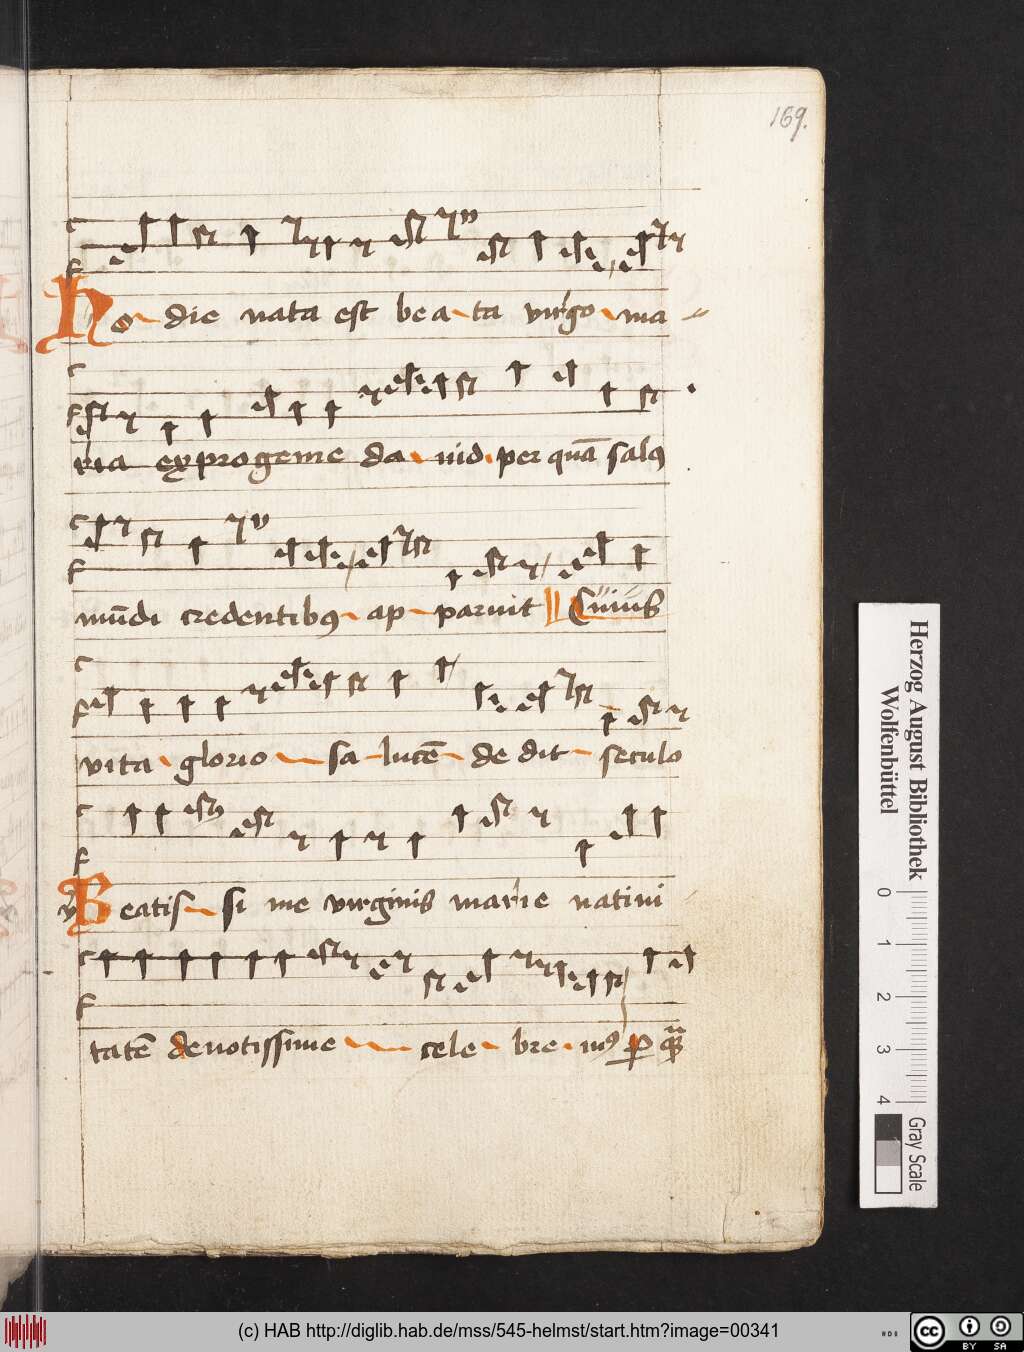 169.
Ho die nata est bea ta virgo ma
ria ex progenie da uid per quā salus
mūdi credentibus ap paruit Cuius
vita glorio sa lucē de dit seculo
v Beatis si me virginis marie natiui
tatē deuotissime cele bre mus
Herzog August Bibliothek
Wolfenbüttel
0 1 2 3 4
Gray Scale
(c) HAB http://diglib.hab.de/mss/545-helmst/start.htm?image=00341
cc BY SA